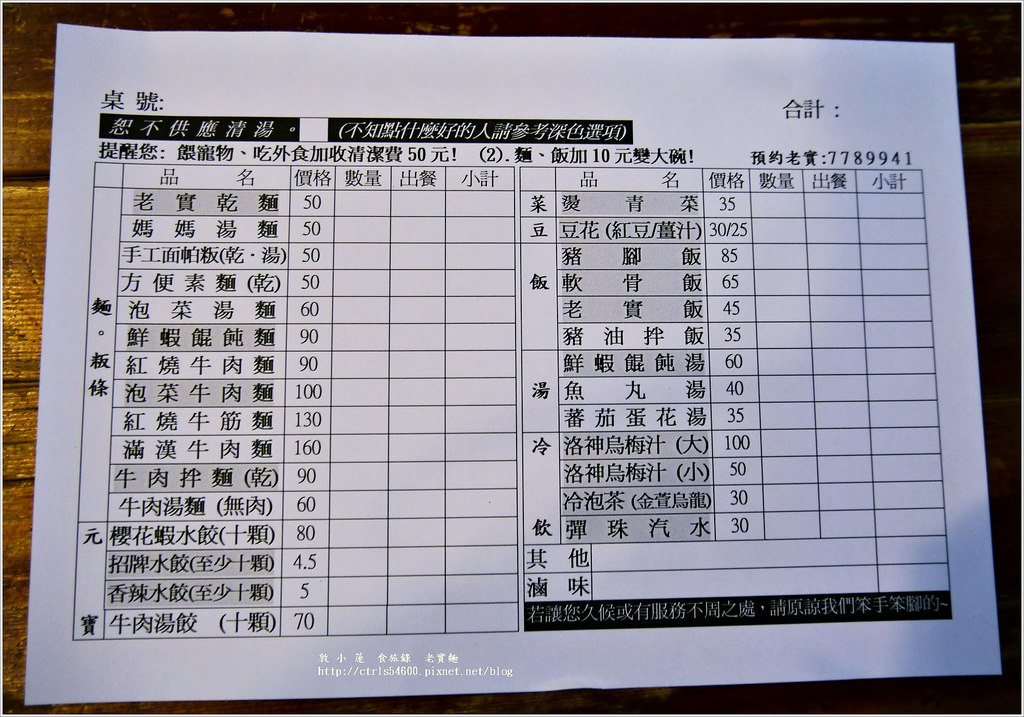 桌號:
合計：
恕不供應清湯。
(不知點什麼好的人請參考深色選項)
提醒您: 餵寵物、吃外食加收清潔費50元! (2).麵、飯加10元變大碗!
預約老實:7789941
品名 價格 數量 出餐 小計
麵。粄條
老實乾麵 50
媽媽湯麵 50
手工面帕粄(乾·湯) 50
方便素麵(乾) 50
泡菜湯麵 60
鮮蝦餛飩麵 90
紅燒牛肉麵 90
泡菜牛肉麵 100
紅燒牛筋麵 130
滿漢牛肉麵 160
牛肉拌麵(乾) 90
牛肉湯麵(無肉) 60
元寶
櫻花蝦水餃(十顆) 80
招牌水餃(至少十顆) 4.5
香辣水餃(至少十顆) 5
牛肉湯餃 (十顆) 70
品名 價格 數量 出餐 小計
菜 燙青菜 35
豆 豆花(紅豆/薑汁) 30/25
飯
豬腳飯 85
軟骨飯 65
老實飯 45
豬油拌飯 35
湯
鮮蝦餛飩湯 60
魚丸湯 40
蕃茄蛋花湯 35
冷飲
洛神烏梅汁(大) 100
洛神烏梅汁(小) 50
冷泡茶(金萱烏龍) 30
彈珠汽水 30
其他
滷味
若讓您久候或有服務不周之處，請原諒我們笨手笨腳的~
敦小蓮 食旅錄 老實麵
http://ctrls54600.pixnet.net/blog